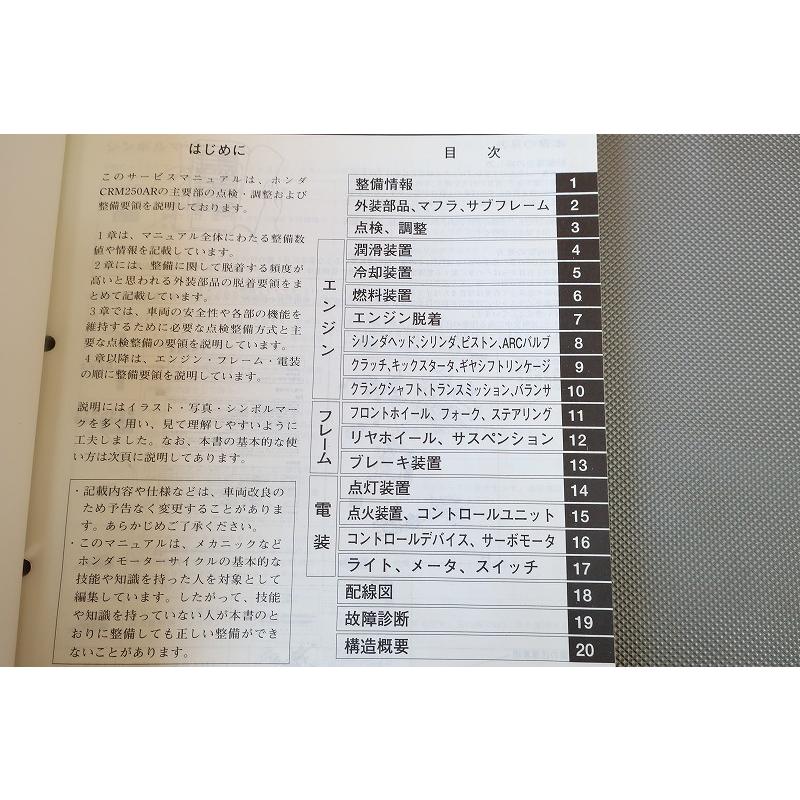 はじめに
このサービスマニュアルは、ホンダ
CRM250ARの主要部の点検・調整および
整備要領を説明しております。
1章は、マニュアル全体にわたる整備数
値や情報を記載しています。
2章には、整備に関して脱着する頻度が
高いと思われる外装部品の脱着要領をま
とめて記載しています。
3章では、車両の安全性や各部の機能を
維持するために必要な点検整備方式と主
要な点検整備の要領を説明しています。
4章以降は、エンジン・フレーム・電装
の順に整備要領を説明しています。
説明にはイラスト・写真・シンボルマー
クを多く用い、見て理解しやすいように
工夫しました。なお、本書の基本的な使
い方は次頁に説明してあります。
・記載内容や仕様などは、車両改良の
ため予告なく変更することがありま
す。あらかじめご了承ください。
・このマニュアルは、メカニックなど
ホンダモーターサイクルの基本的な
技能や知識を持った人を対象として
編集しています。したがって、技能
や知識を持っていない人が本書のと
おりに整備しても正しい整備ができ
ないことがあります。
目次
整備情報 1
外装部品、マフラ、サブフレーム 2
点検、調整 3
エンジン
潤滑装置 4
冷却装置 5
燃料装置 6
エンジン脱着 7
シリンダヘッド、シリンダ、ピストン、ARCバルブ 8
クラッチ、キックスタータ、ギヤシフトリンケージ 9
クランクシャフト、トランスミッション、バランサ 10
フレーム
フロントホイール、フォーク、ステアリング 11
リヤホイール、サスペンション 12
ブレーキ装置 13
電装
点灯装置 14
点火装置、コントロールユニット 15
コントロールデバイス、サーボモータ 16
ライト、メータ、スイッチ 17
配線図 18
故障診断 19
構造概要 20